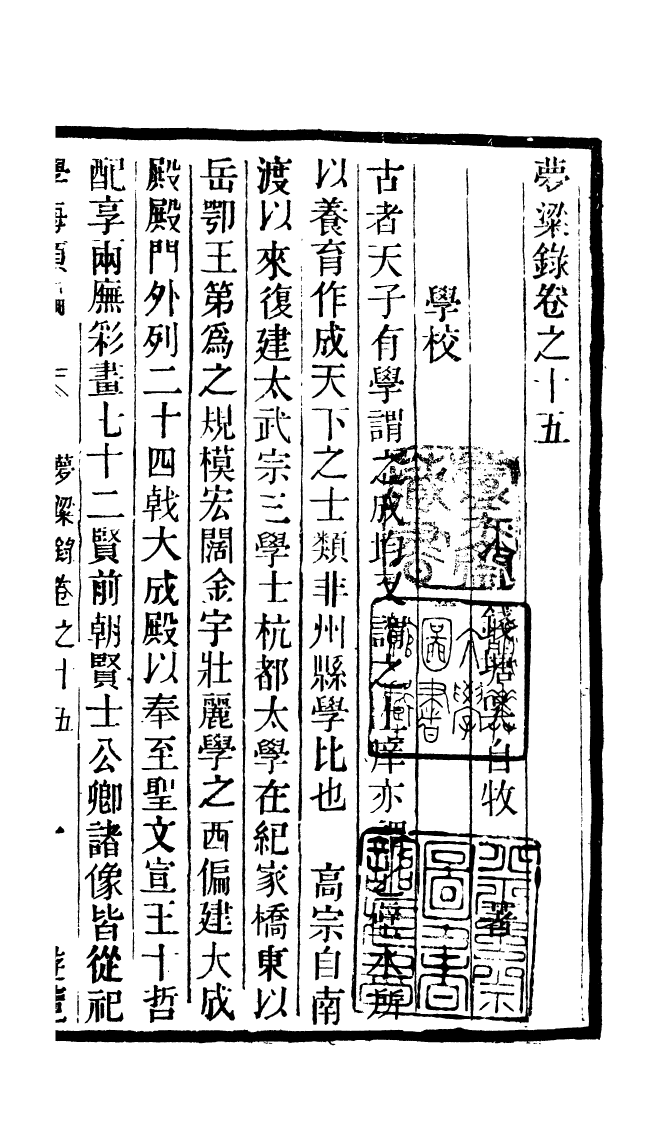 夢粱錄卷之十五
錢塘吳自牧 著
學校
古者天子有學謂之成均又謂之上庠亦謂之辟水所
以養育作成天下之士類非州縣學比也 高宗自南
渡以來復建太武宗三學士杭都太學在紀家橋東以
岳鄂王第爲之規模宏闊金字壯麗學之西偏建大成
殿殿門外列二十四戟大成殿以奉至聖文宣王十哲
配享兩廡彩畫七十二賢前朝賢士公卿諸像皆從祀
學海類編 夢粱錄卷之十五 一 遊覽